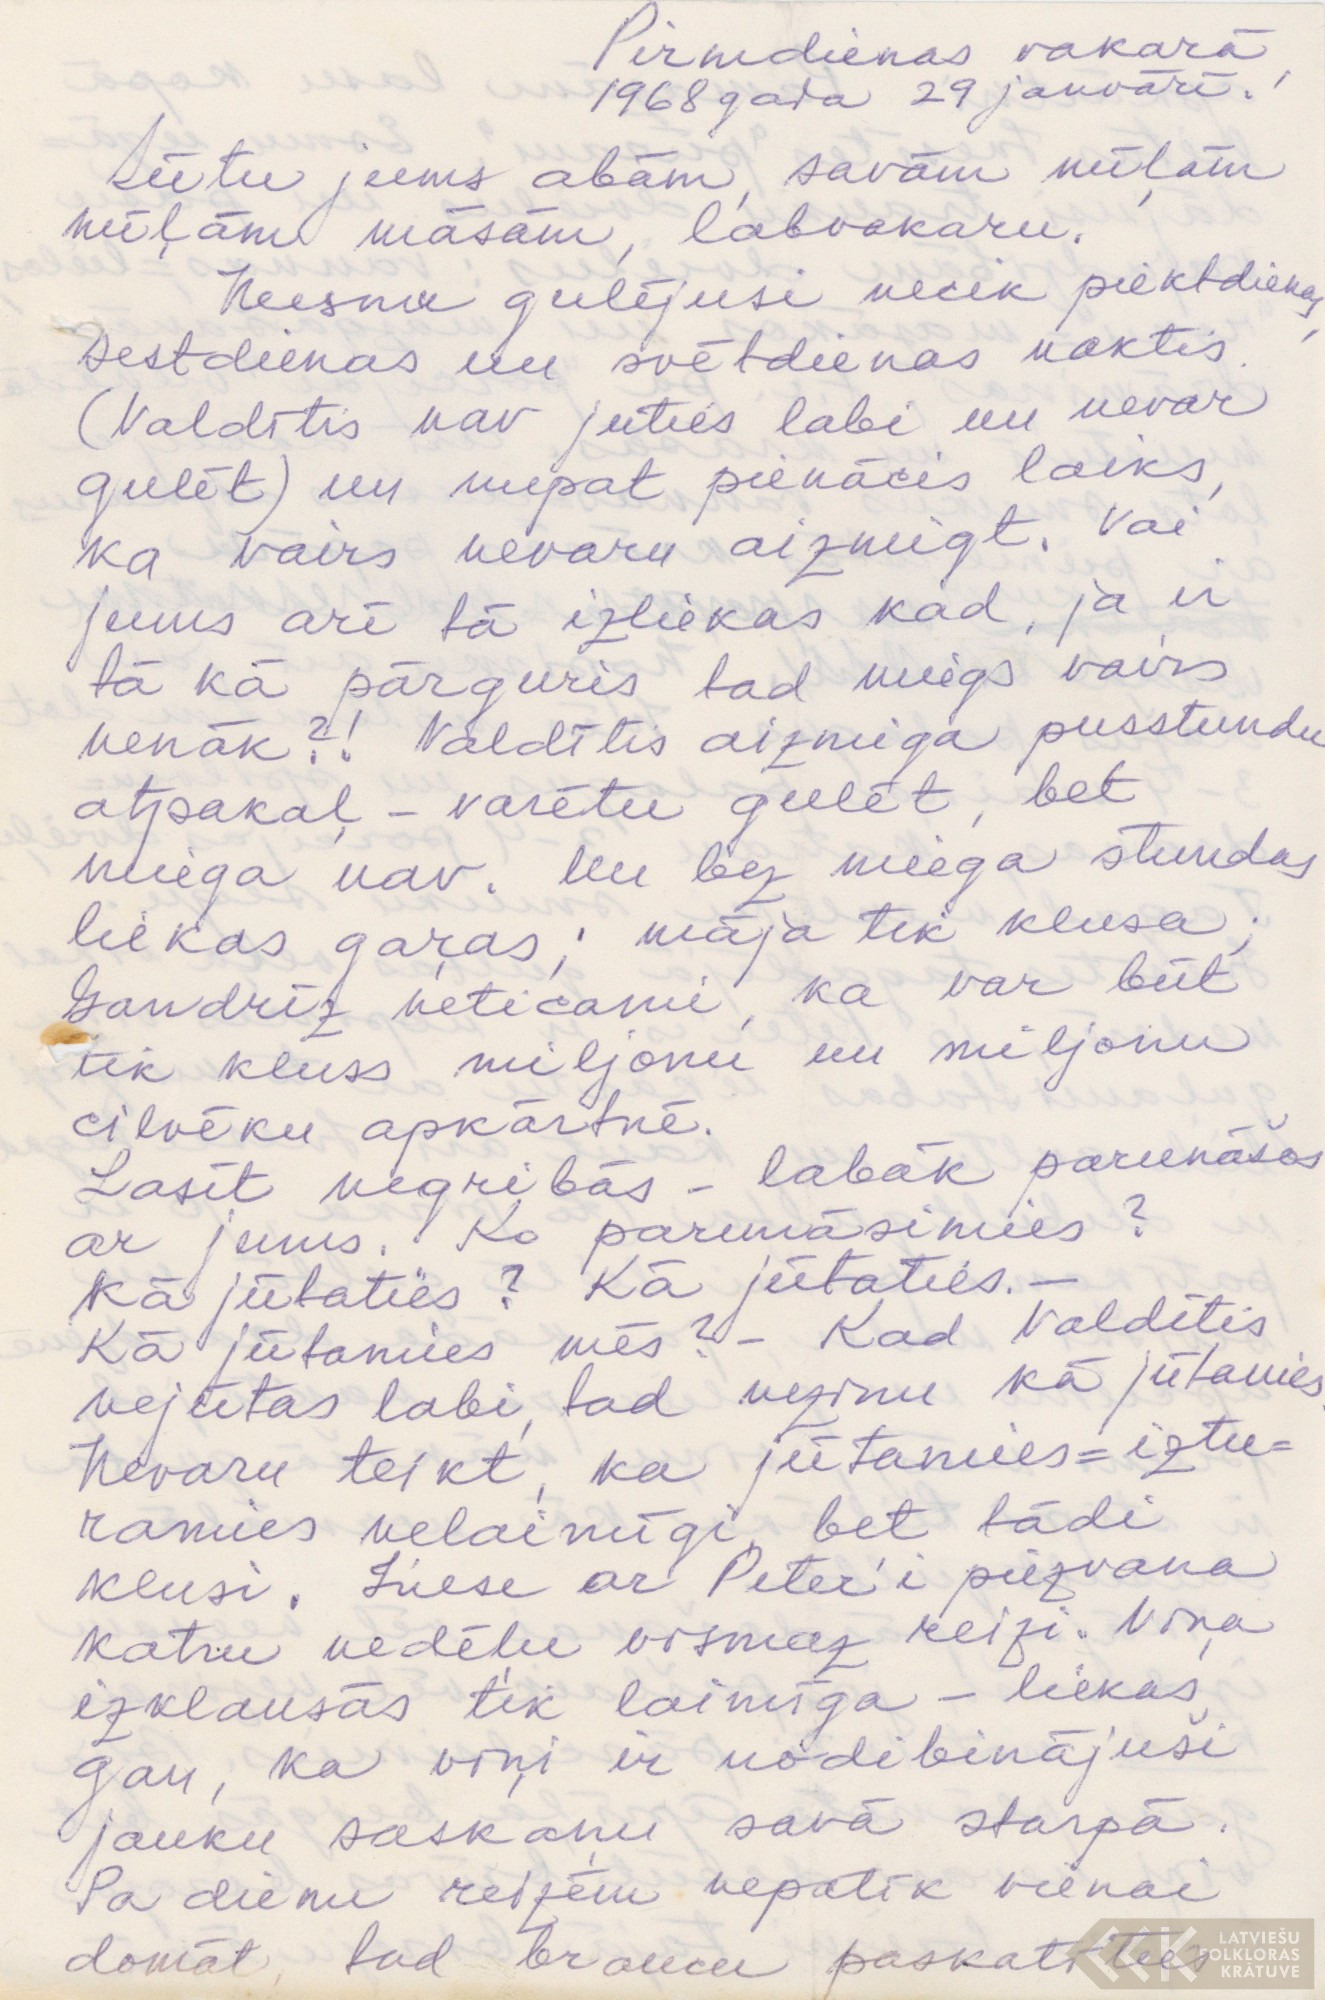 Pirmdienas vakarā,
1968 gada 29 janvārī.
Sūtu jums abām, savām mīļām
mīļām māsām, labvakaru.
Neesmu gulējusi necik piektdienas,
sestdienas un svētdienas naktis.
(Valdītis nav juties labi un nevar
gulēt) un nupat pienācis laiks,
ka vairs nevaru aizmigt. Vai
jums arī tā izliekas kad, ja ir
tā kā pārguris tad miegs vairs
nenāk?! Valdītis aizmiga pusstundu
atpakaļ – varētu gulēt, bet
miega nav. Un bez miega stundas
liekas garas; māja tik klusa;
Gandrīz neticami, ka var būt
tik kluss miljonu un miljonu
cilvēku apkārtnē.
Lasīt negribās – labāk parunāšos
ar jums. Ko parunāsimies?
Kā jūtaties? Kā jūtaties. –
Kā jūtamies mēs? – Kad Valdītis
nejūtas labi, tad nezinu kā jūtamies.
Nevaru teikt, ka jūtamies = iztu=
ramies nelaimīgi, bet tādi
klusi. Inese ar Peter'i piezvana
katru nedēļu vismaz reizi. Viņa
izklausās tik laimīga – liekas
gan, ka viņi ir nodibinājuši
jauku saskaņu savā starpā.
Pa dienu reizēm nepatīk vienai
domāt, tad braucu paskatīties
LATVIEŠU
FOLKLORAS
KRĀTUVE